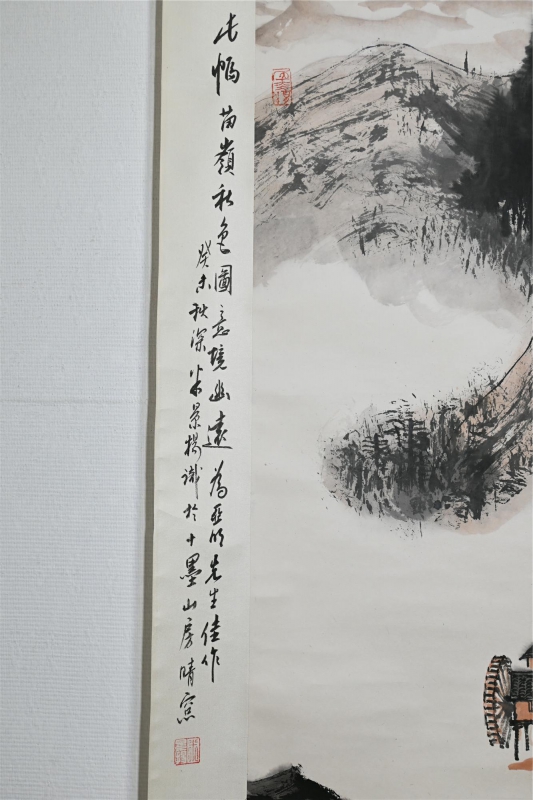 此幀苗嶺秋色圖意境幽遠為亞明先生佳作
癸未秋深米景揚識於十墨山房晴窓